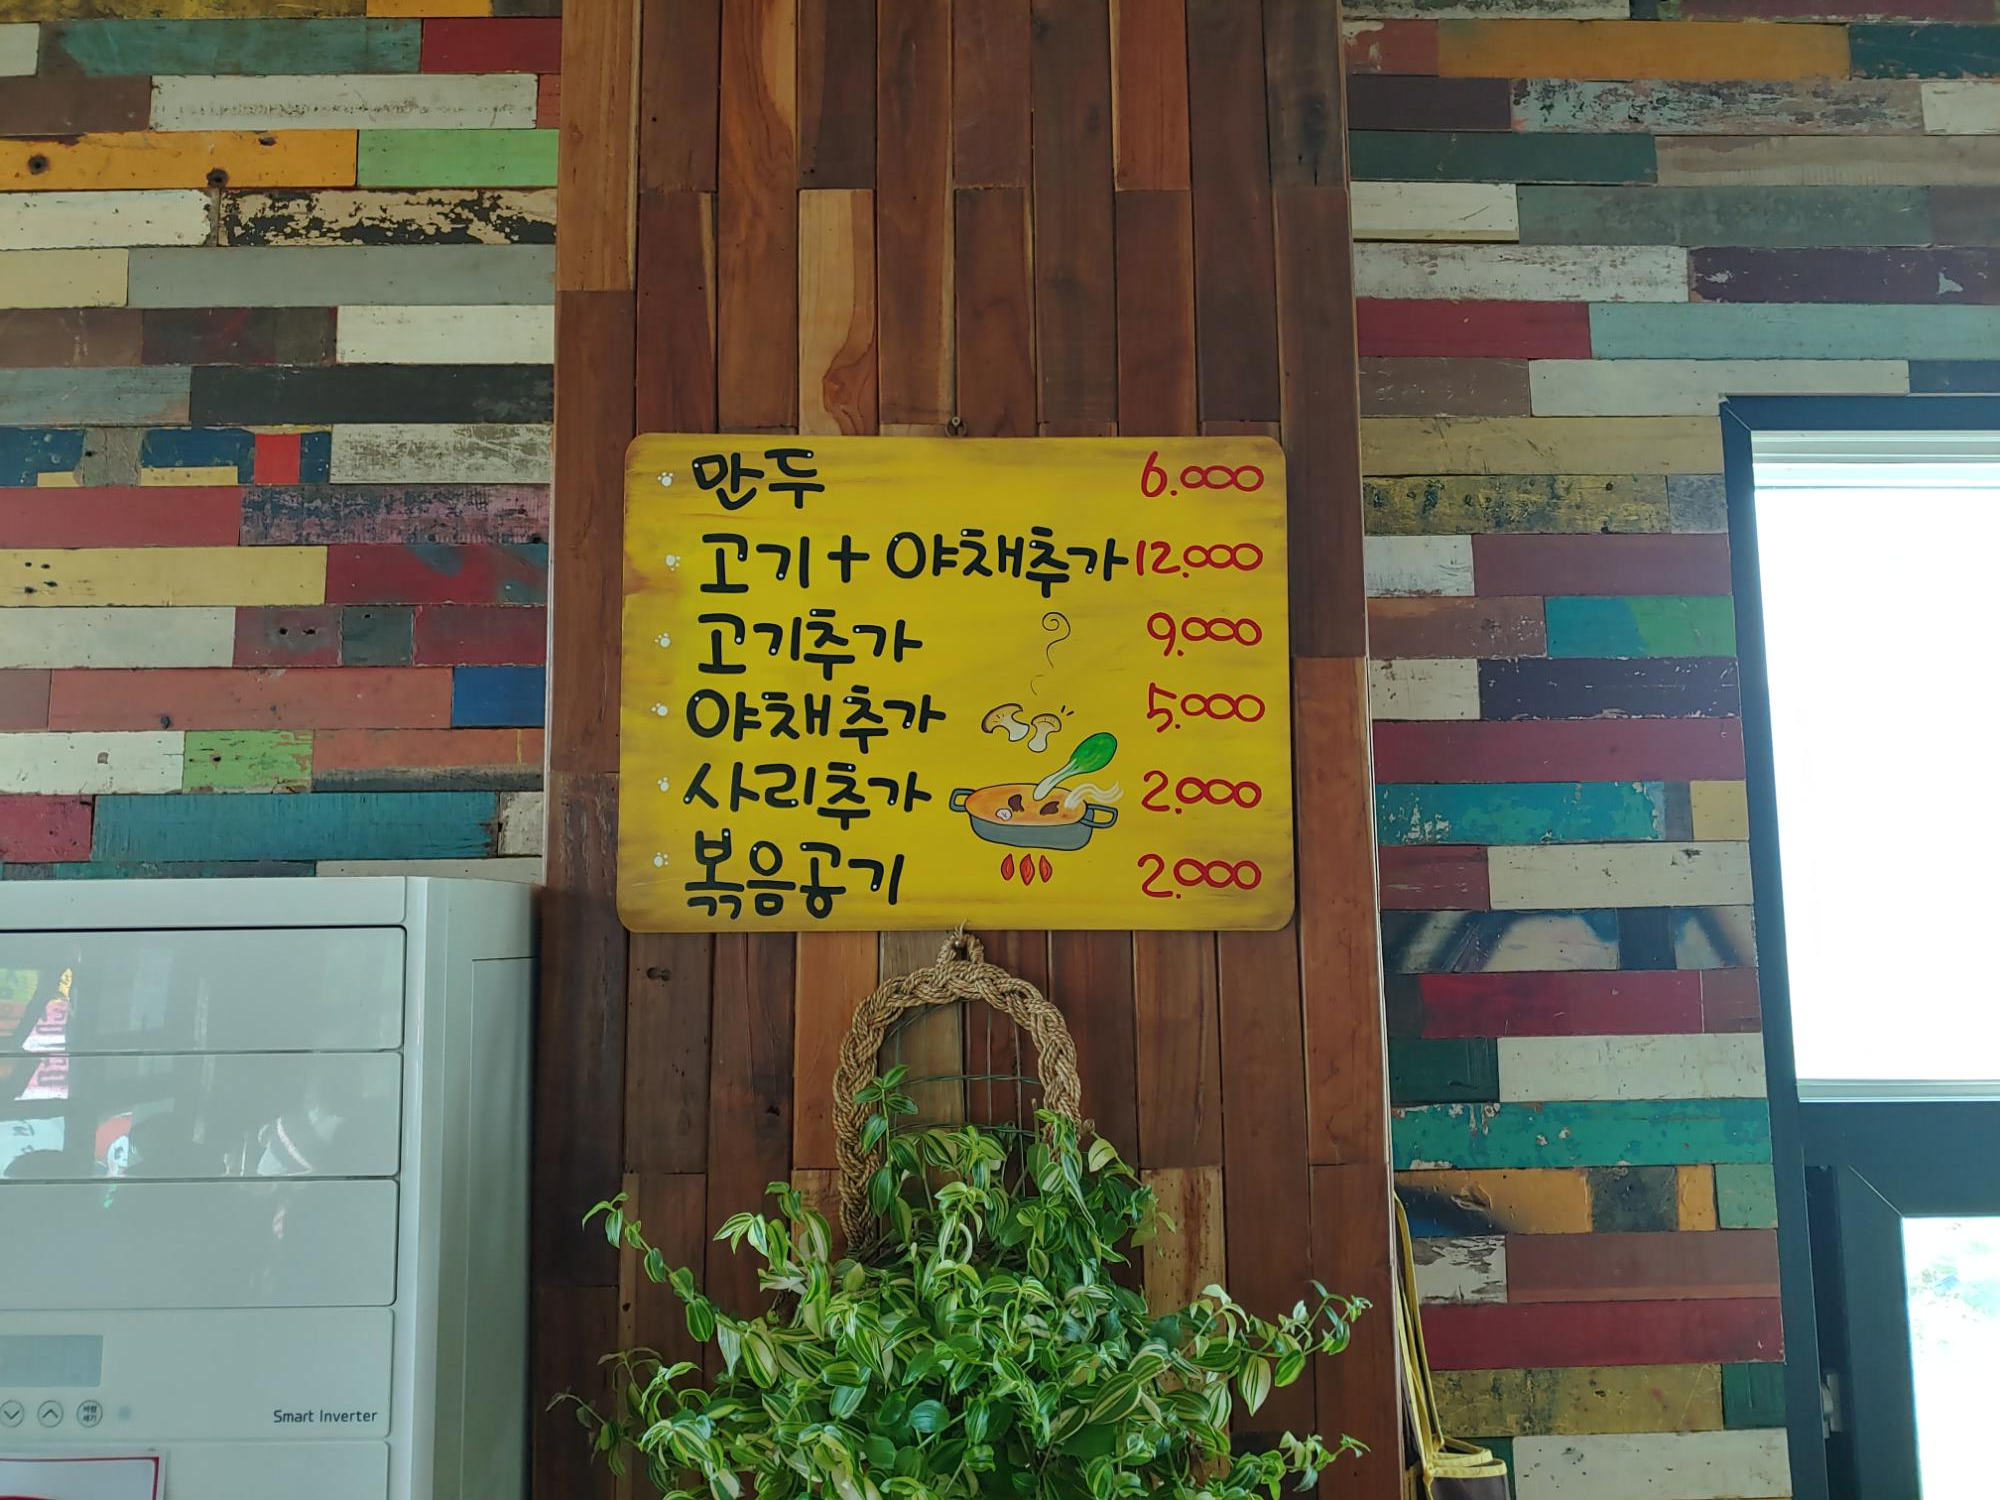 만두 6.000
고기+야채추가 12.000
고기추가 9.000
야채추가 5.000
사리추가 2.000
볶음공기 2.000
바람세기
Smart Inverter